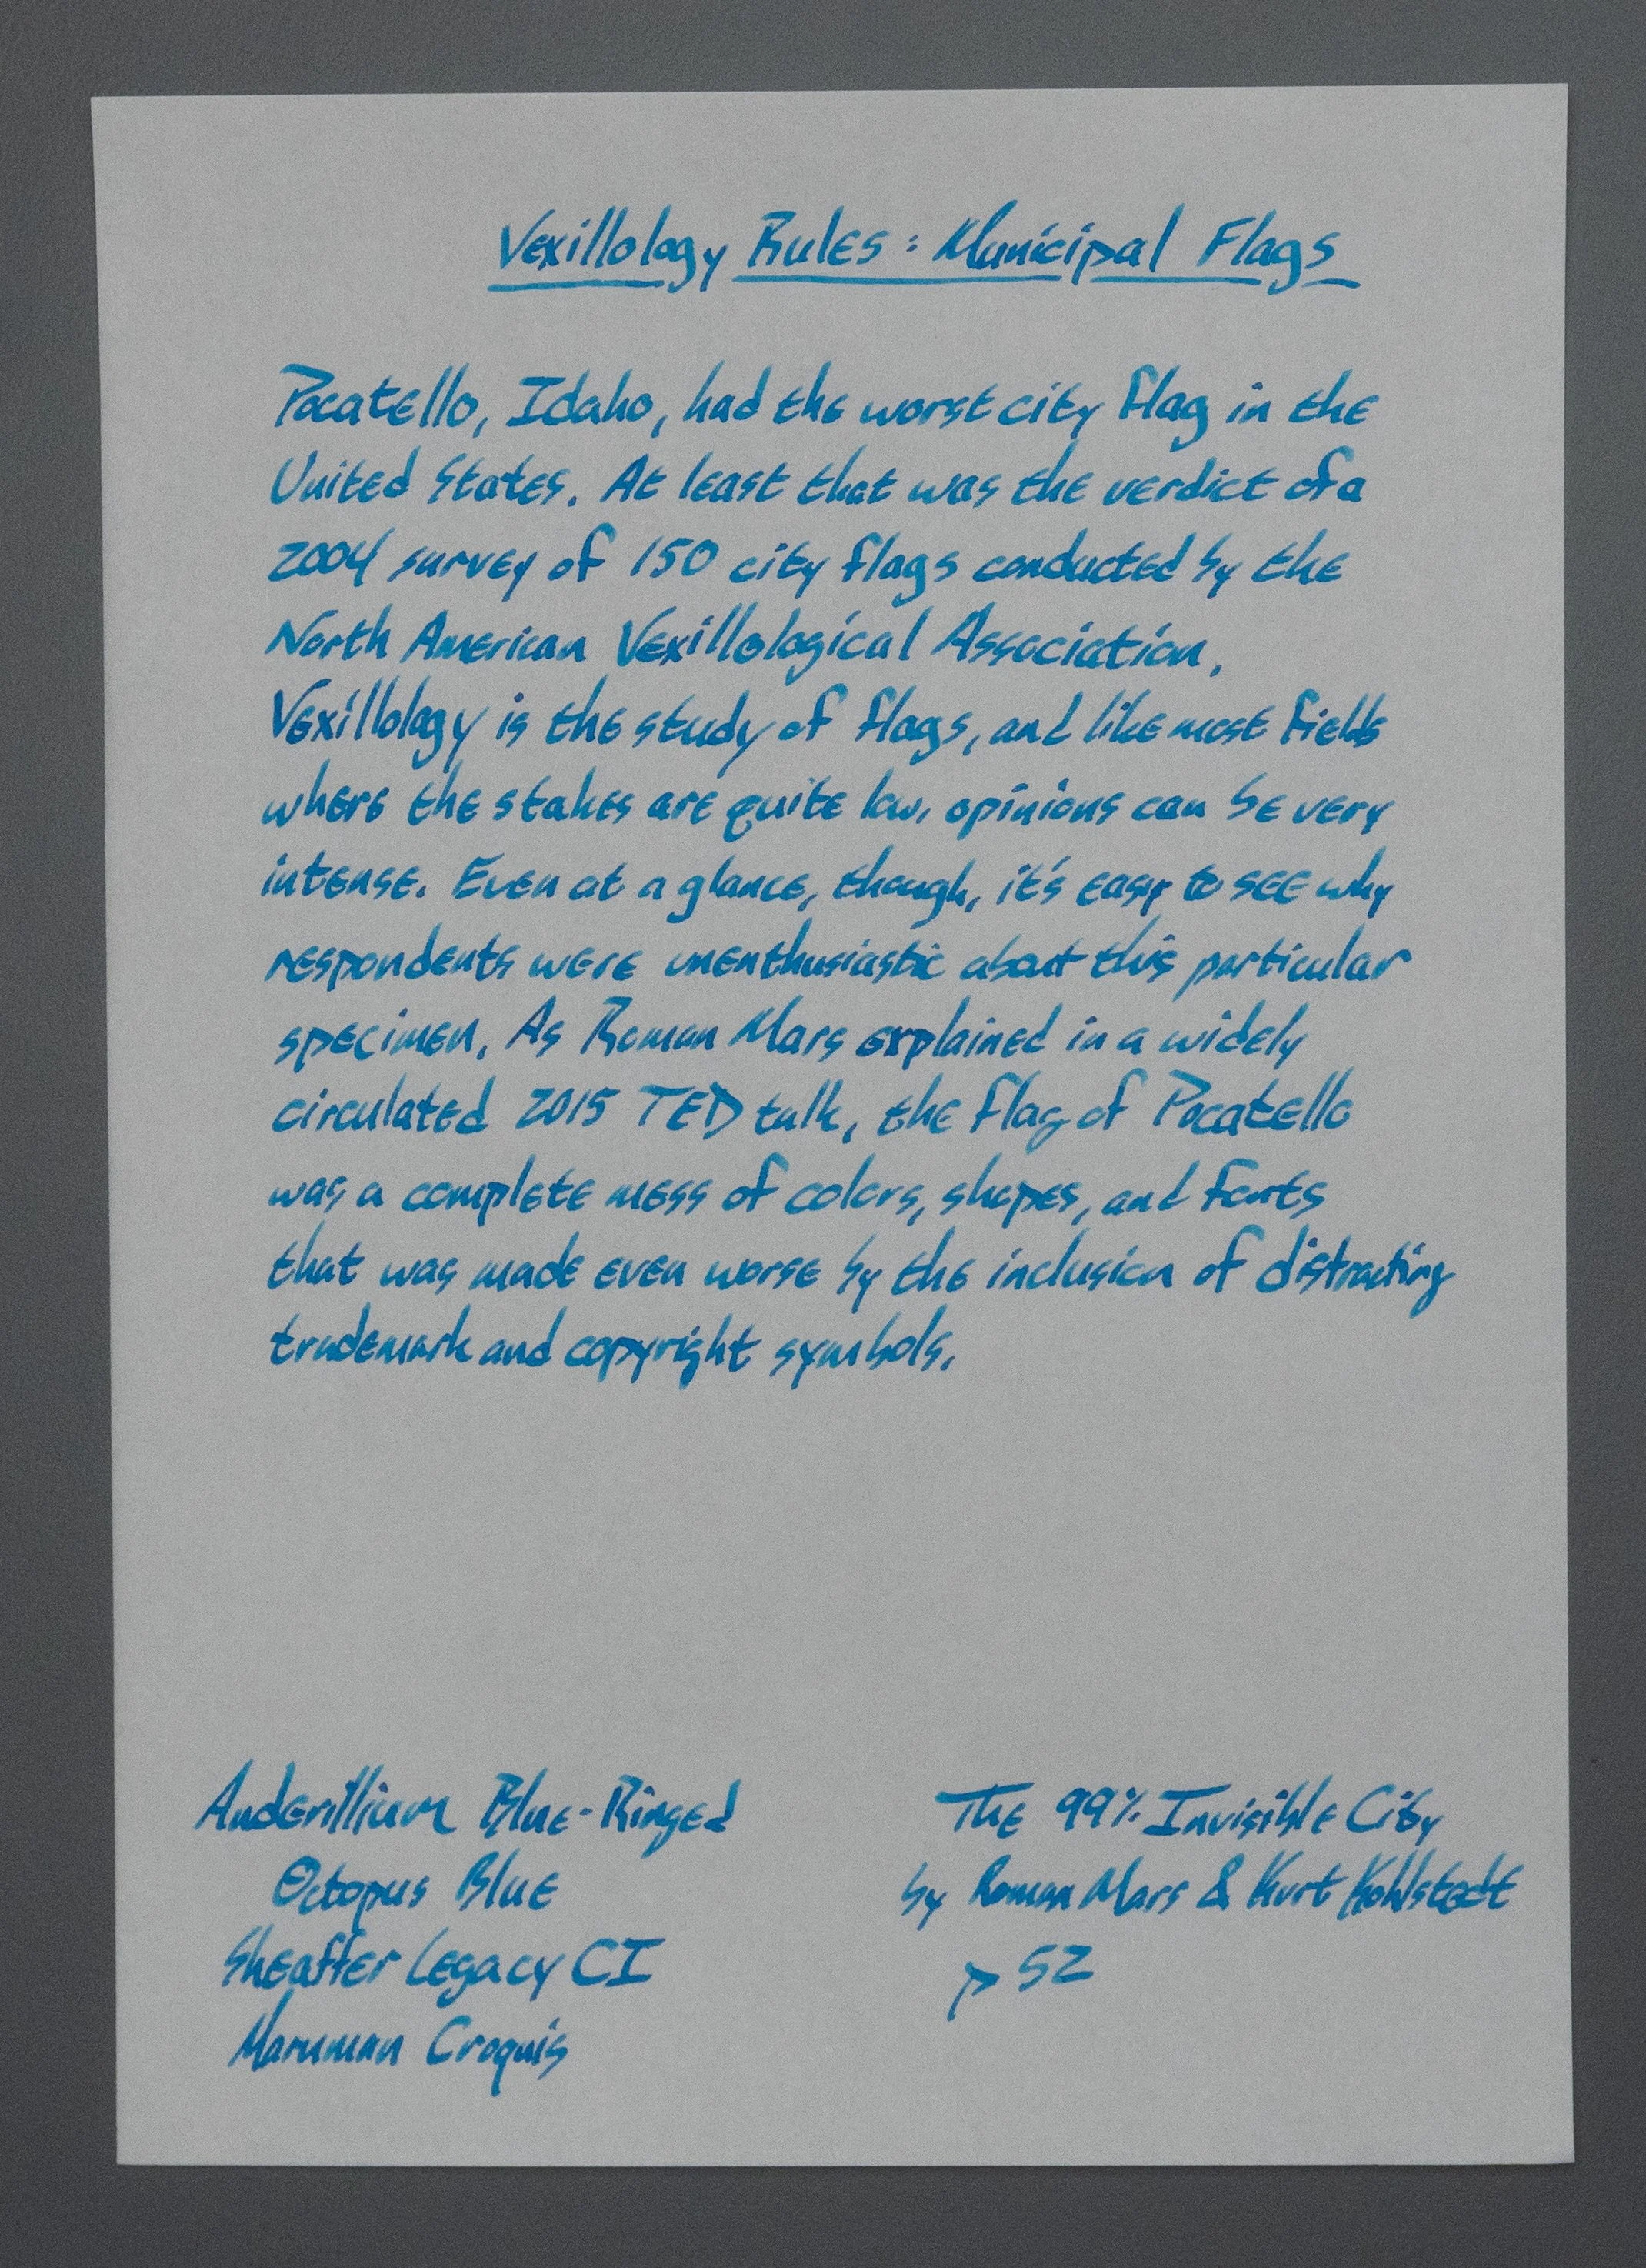 Vexillology Rules: Municipal Flags
Pocatello, Idaho, had the worst city flag in the
United States. At least that was the verdict of a
2004 survey of 150 city flags conducted by the
North American Vexillological Association.
Vexillology is the study of flags, and like most fields
where the stakes are quite low, opinions can be very
intense. Even at a glance, though, it's easy to see why
respondents were unenthusiastic about this particular
specimen. As Roman Mars explained in a widely
circulated 2015 TED talk, the flag of Pocatello
was a complete mess of colors, shapes, and fonts
that was made even worse by the inclusion of distracting
trademark and copyright symbols.
Anderillium Blue-Ringed
Octopus Blue
Sheaffer Legacy CI
Maruman Croquis
The 99% Invisible City
by Roman Mars & Kurt Kohlstedt
p 52